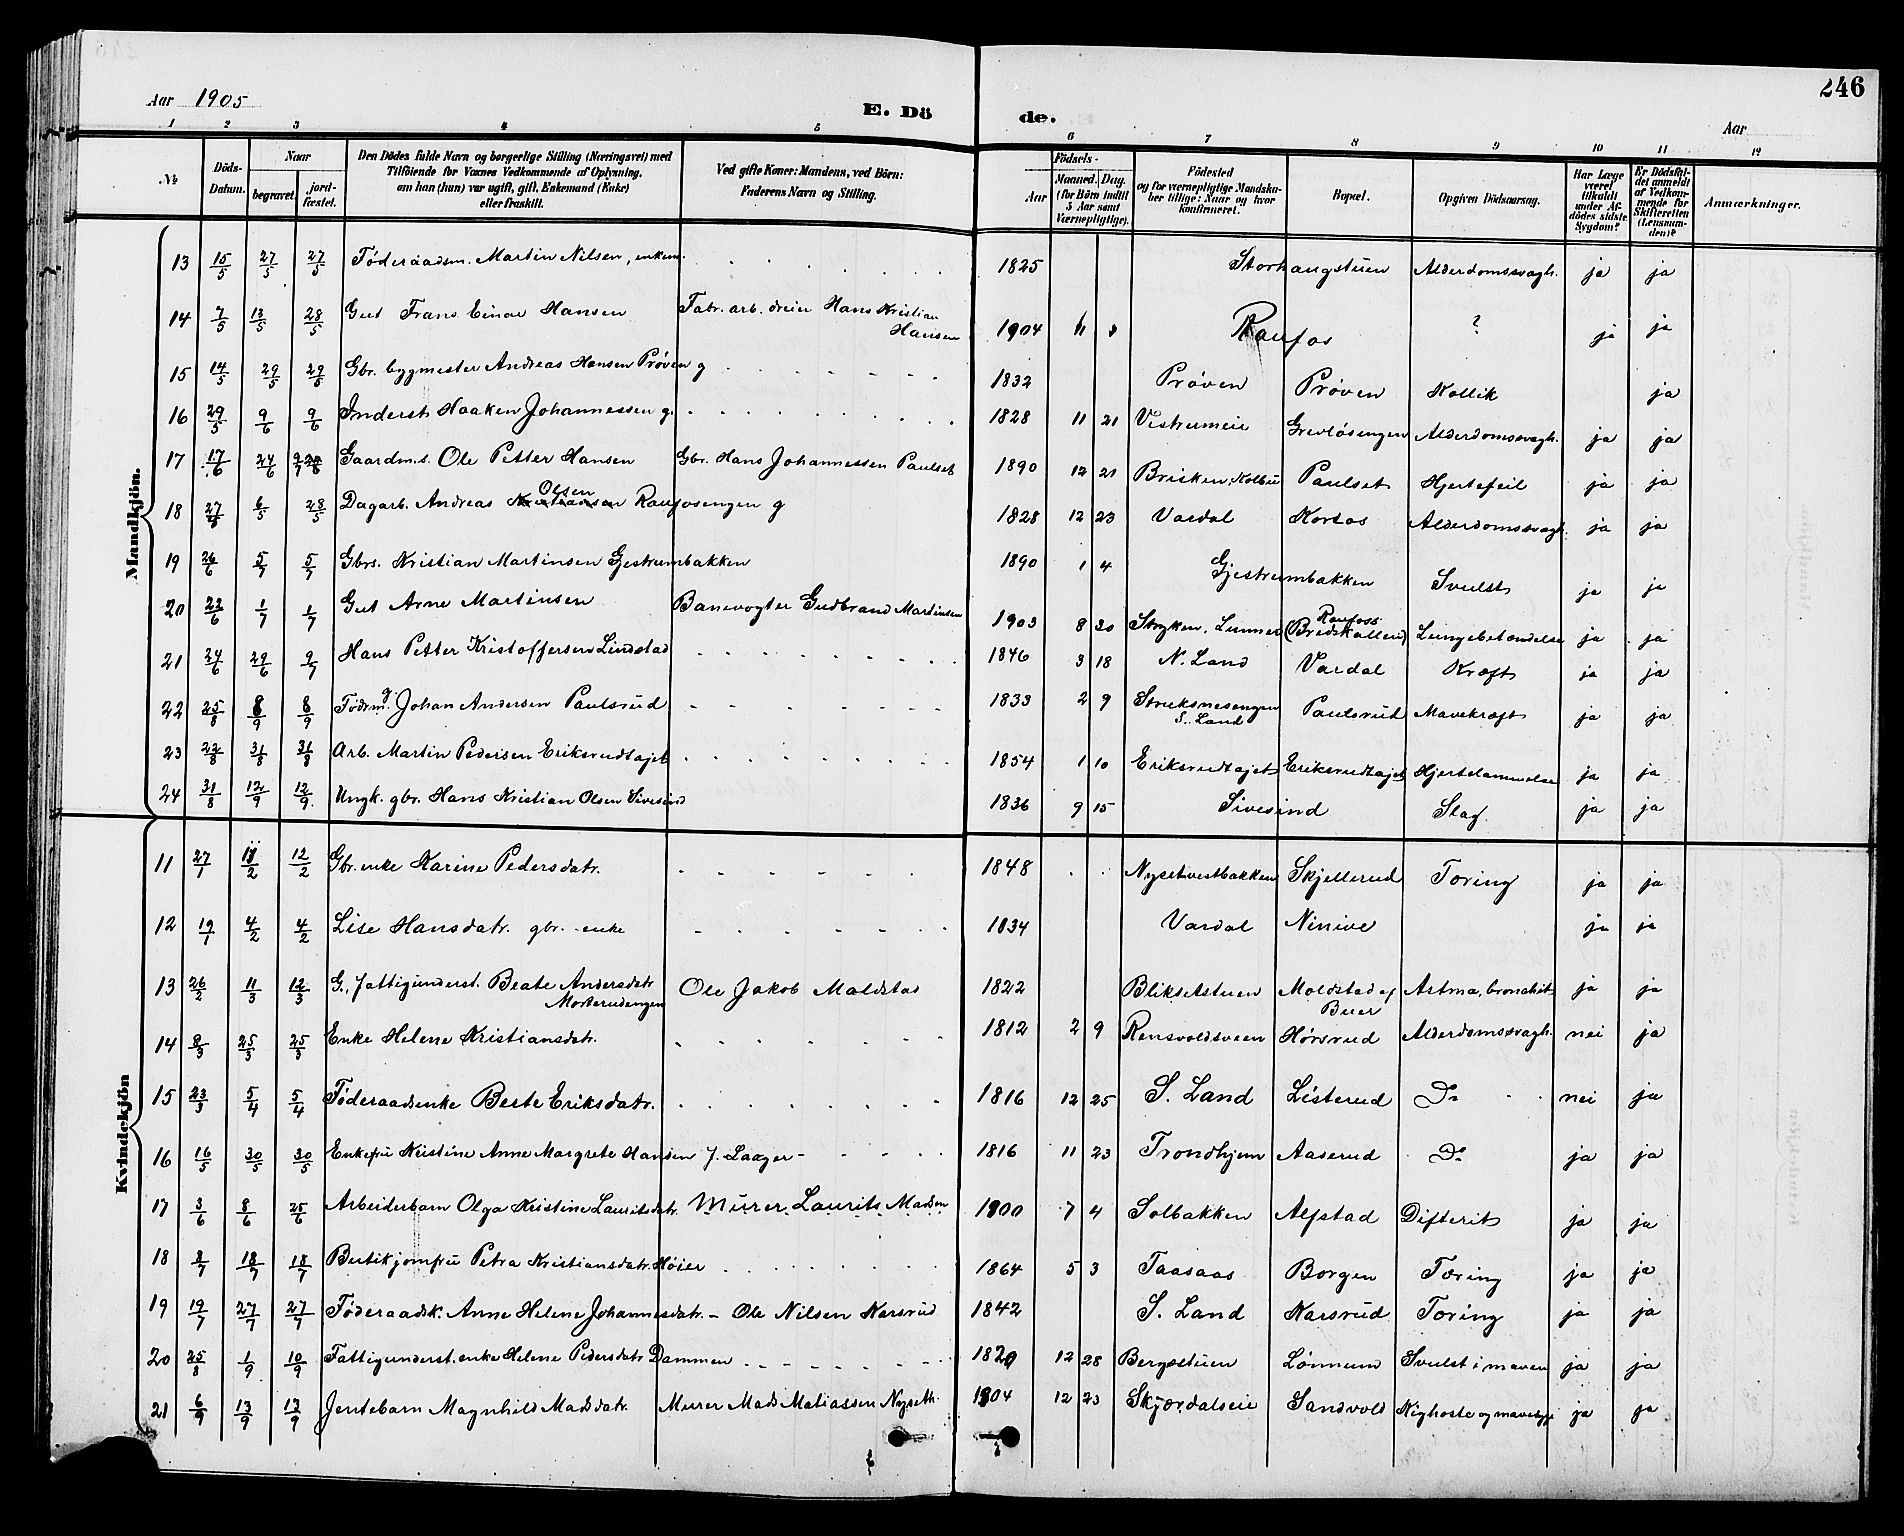 Aar 1905
E. Dö
de.
246
Aar
1 2 3 4 5 6 7 8 9 10 11 12
№
Döds-Datum.
Naar
begravet.
jord-fæstet.
Den Dödes fulde Navn og borgerlige Stilling (Næringsvei) med
Tilföiende for Voxnes Vedkommende af Oplysning,
om han (hun) var ugift, gift, Enkemand (Enke)
eller fraskilt.
Ved gifte Koner: Mandens, ved Börn:
Faderens Navn og Stilling.
Födsels-
Aar
Maaned. Dag.
(for Börn indtil
5 Aar samt
Værnepligtige).
Födested
og for værnepligtige Mandska-
ber tillige: Naar og hvor
konfirmeret.
Bopæl.
Opgiven Dödsaarsag.
Har Læge
været
tilkaldt
under Af-
dödes sidste
Sygdom?
Er Dödsfal-
det anmeldt
af Vedkom-
mende for
Skifteretten
(Lensman-
den)?
Anmærkninger.
Mandkjön.
13 15/5 27/5 27/5 Föderaadsm. Martin Nilsen, enkem. 1825 Storhaugstuen Alderdomssvagh. ja ja
14 7/5 13/5 28/5 Gut Frans Einar Hansen Fabr. arb. dreier Hans Kristian
Hansen 1904 Raufos ? ja ja
15 14/5 29/5 29/5 Gbr. bygmester Andreas Hansen Prøven g 1832 Prøven Prøven Kollik ja
16 29/5 9/6 9/6 Inderst Haaken Johannessen g. 1828 11 21 Vestrumeie Grevlösengen Alderdomssvagh. ja ja
17 17/6 24/6 Gaardm.s. Ole Petter Hansen Gbr. Hans Johannessen Paulset 1890 12 21 Brisken, Kolbu Paulset Hjertefeil ja ja
18 6/5 28/5 Dagarb. Andreas Olsen Raufosengen g 1828 12 23 Vardal Kortos Alderdomssvagh. ja ja
19 26/6 5/7 5/7 Gbrs. Kristian Martinsen Gjestrumbakken 1890 1 4 Gjestrumbakken Svulst ja ja
20 22/6 1/7 1/7 Gut Arne Martinsen Banevogter Gudbrand Martinsen 1903 8 20 Stryken, Lunner Raufoss
(Bredskallen) Lungebetændelse ja ja
21 24/6 29/6 9/7 Hans Petter Kristoffersen Lindstad 1846 3 18 N. Land Vardal Kræft ja ja
22 25/8 8/9 8/9 Födrm. g. Johan Andersen Paulsrud 1833 2 9 Struksnesengen
S. Land Paulsrud Mavekræft ja ja
23 22/8 31/8 31/8 Arb. Martin Pedersen Eriksrudtajet 1854 1 10 Eriksrudtajet Eriksrudtajet Hjertelammelse ja ja
24 31/8 12/9 12/9 Ungk. gbr. Hans Kristian Olsen Sivesind 1836 9 15 Sivesind Slag. ja ja
Kvindekjön
11 27/1 12/2 Gbr. enke Karine Pedersdatr. 1848 Nysetvestbakken Skjellerud Tæring ja ja
12 19/1 4/2 4/2 Lise Hansdatr. gbr. enke 1834 Vardal Ninive ja ja
13 26/2 11/3 12/3 G., fattigunderst. Beate Andersdatr
Morterudengen Ole Jakob Moldstad 1822 Blikset­stuen Moldstad af
Buer Astma, bronchit ja ja
14 8/3 25/3 25/3 Enke Helene Kristiansdatr. 1812 2 9 Rensvoldsveen Hørsrud Alderdomssvagh. nei ja
15 23/3 5/4 5/4 Föderaadsenke Berte Eriksdatr. 1816 12 25 S. Land Listerud Do nei ja
16 16/5 30/5 30/5 Enkefru Kristine Anne Margrete Hansen f. Laager 1816 11 23 Trondhjem Aaserud Do ja ja
17 3/6 8/6 25/6 Arbeiderbarn Olga Kristine Lauritsdatr. Murer Laurits Madsen 1900 7 4 Solbakken Alfstad Difterit ja ja
18 8/7 18/7 18/7 Butikjomfru Petra Kristiansdatr. Høier 1864 5 3 Taasaas Borgen Tæring ja ja
19 19/7 27/7 27/7 Föderaadsk. Anne Helene Johannesdatr. – Ole Nilsen Karsrud 1842 S. Land Karsrud Tæring ja ja
20 25/8 1/9 10/9 Fattigunderst. enke Helene Pedersdatr Dammen 1820 12 28 Bergestuen Lønnum Svulst i maven ja ja
21 6/9 13/9 17/9 Jentebarn Magnhild Madsdatr. Murer Mads Matiassen Nyseth. 1904 12 23 Skjærdalseie Sandvold Kighoste og ja ja